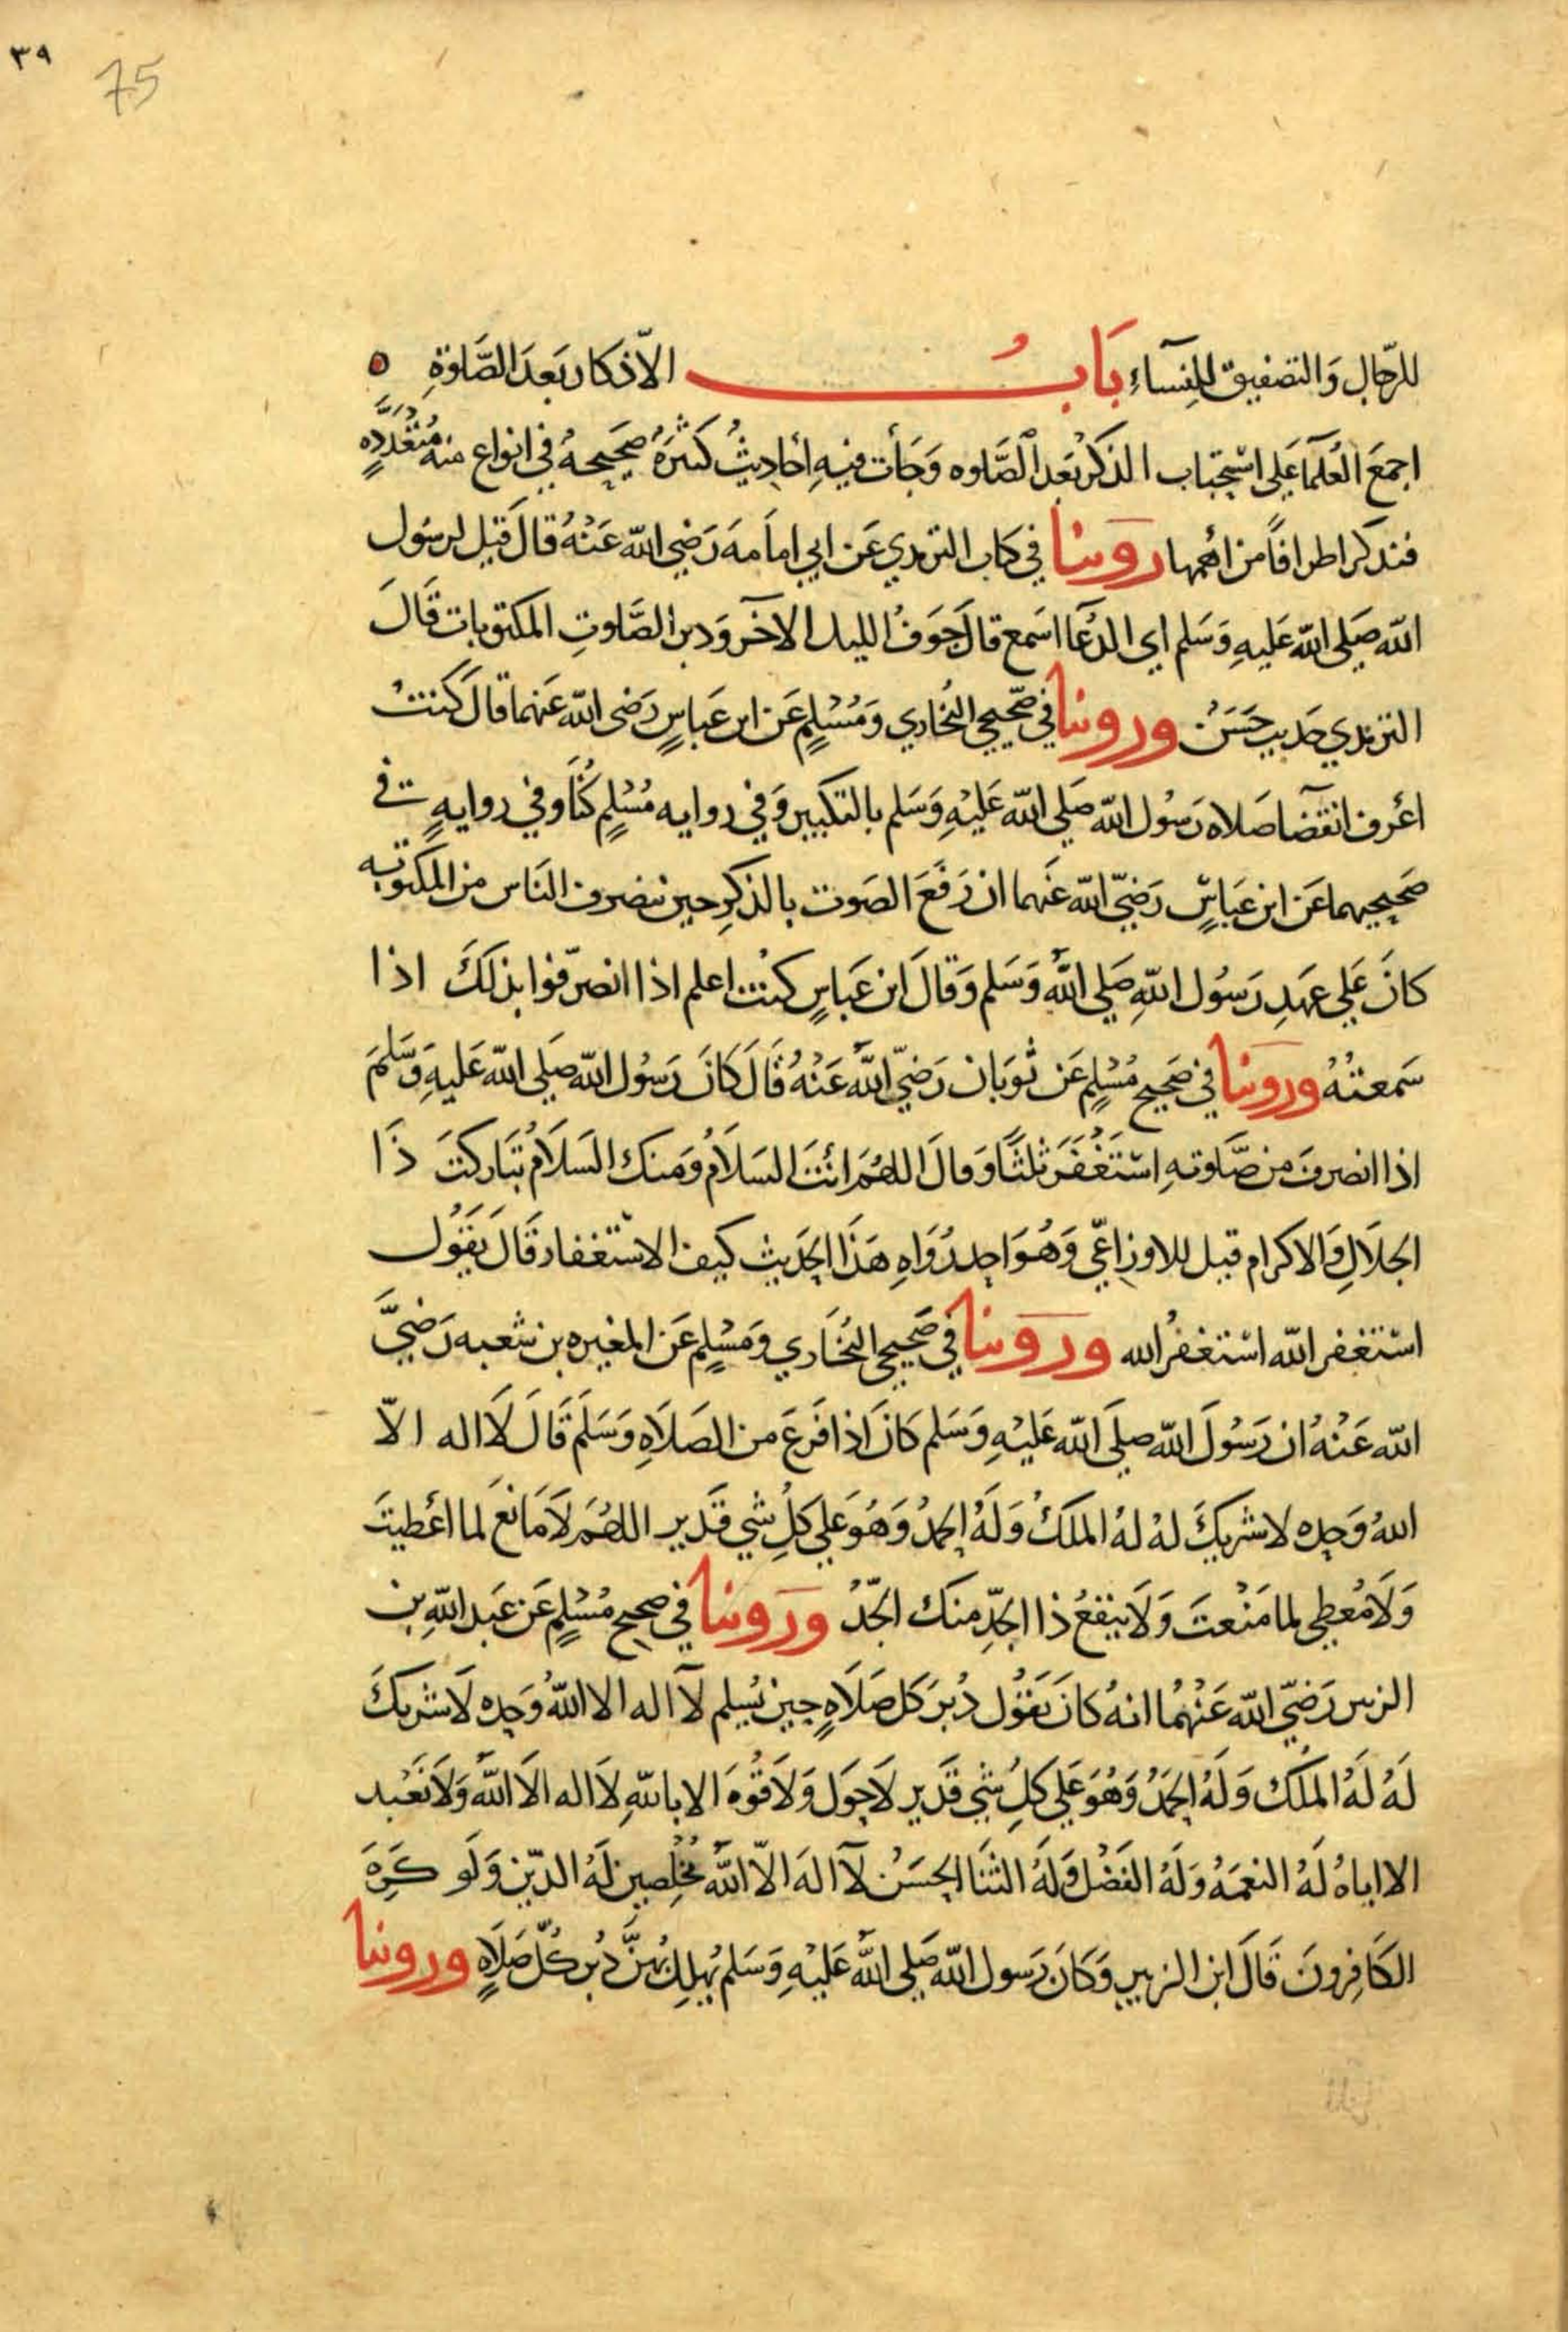 ٣٩
75
للرّجال وَالتصفيق للنِسآءِ بَابُ الاّذكار بَعدَ الصَّلوٰةِ
اجمعَ العُلمآ عَلى استحبَاب الذكر بَعد الصَّلوه وَجَأت فيهِ أحَاديثُ كثيرَهُ صَحيحهُ في انواع منه مُتَعَدّدَهٍ
فنذكر اطرافاً من اهمها روَينا في كتاب الترمذي عَن ابي امامَه رَضي الله عَنْهُ قالَ قيل لرسَول
الله صَلى الله عَليهِ وَسَلم اي الدعَا اسَمع قالَ جَوَفُ الليل الآخر وَدبر الصَّلوتِ المكتوبات قَالَ
الترمذي حَديث حَسَنْ وروينا في صَحّيحي البُخاري وَمُسْلمٍ عَن ابن عَباسٍ رَضى الله عَنهما قالَ كَنتُ
اعْرف انقضآ صَلاه رَسُول الله صَلي الله عَليْهِ وَسَلم بالتكبير وَفي روايه مُسْلمٍ كُنَّا وفي روايهٍ في
صَحيحيهما عَن ابن عَبَاسٍّ رَضيّ الله عَنهما ان رَفعَ الصَوت بالذكرِ حين ينصرف النَاس من المكتوبه
كانَ عَلي عهَدِ رَسُول اللهِ صَلي اللهُ وَسَلم وَقالَ ابن عَباسٍ كنُت اعلم اذا انصرّفوا بذلكَ اذا
سَمعتهُ وروَينا في صَحيح مُسْلمٍ عَن ثوَبان رَضيّ اللهُ عَنْهُ قَالَ كانَ رَسوُل الله صَلى الله عَليهِ وَسَّلمَ
اذا انصرفَ من صَّلوتهِ استَغْفَرَ ثلثًا وَقالَ اللهُمَ انْتَ السَلاَمُ وَمنك السَلاَمُ تبَاركتَ ذَا
الجلاَلِ وَالاكرام قيل للاوزاعّي وَهُوَ احد رُوَاهِ هَذَا الحَديث كيف الاستغفار قَالَ يَقُول
استَغفر الله استغفرُ الله وَروَينا في صَحيحي البُخَاري وَمسْلمٍ عَن المغيره بن شعبه رَضيَّ
الله عَنْهُ ان رَسُولَ الله صلَى الله عَليْهِ وَسَلم كانَ اذا فَرغَ من الصَلاَهِ وَسَلمَ قَالَ لَا اله الاّ
اللهُ وَحده لا شريكَ لهُ لهُ الملكُ وَلَهُ الحمدُ وَهُوَ عَلي كلِ شي قَدير اللهُمَ لاَ مَانعَ لما اعْطيتَ
وَلاَ مُعطي لما مَنْعتَ وَلاَ ينفعُ ذا الجدِّ منكَ الجّدُ وَرَوينا في صحيح مُسْلمٍ عَن عَبد اللهِ بن
الزبير رَضيّ الله عَنْهُما انهُ كانَ يَقوُل دُبرَ كل صَلاَهٍ حين يُسلم لآ اله الا اللهُ وَحده لَا شريكَ
لَهُ لَهُ الملَك وَلَهُ الحَمَدُ وَهُوَ عَلي كلِ شي قَدير لاَ حَول وَلاَ قُوهَ الا باللهِ لَا اله الاَ اللهَ وَلاَ نَعْبد
الا اياهُ لَهُ النعمَهُ وَلَهُ الفَضْلُ وَلَهُ الثنَا الحَسَنُ لآ الهَ الاّ اللهُ مُخْلصينَ لَهُ الدّين وَلَو كَرِهَ
الكَافِرونَ قَالَ ابن الزبير وَكانَ رَسول الله صَلي اللهُ عَليْهِ وَسَلم يُهلِلُ بهنَّ دُبرَ كُلّ صَلَاهٍ وروينا